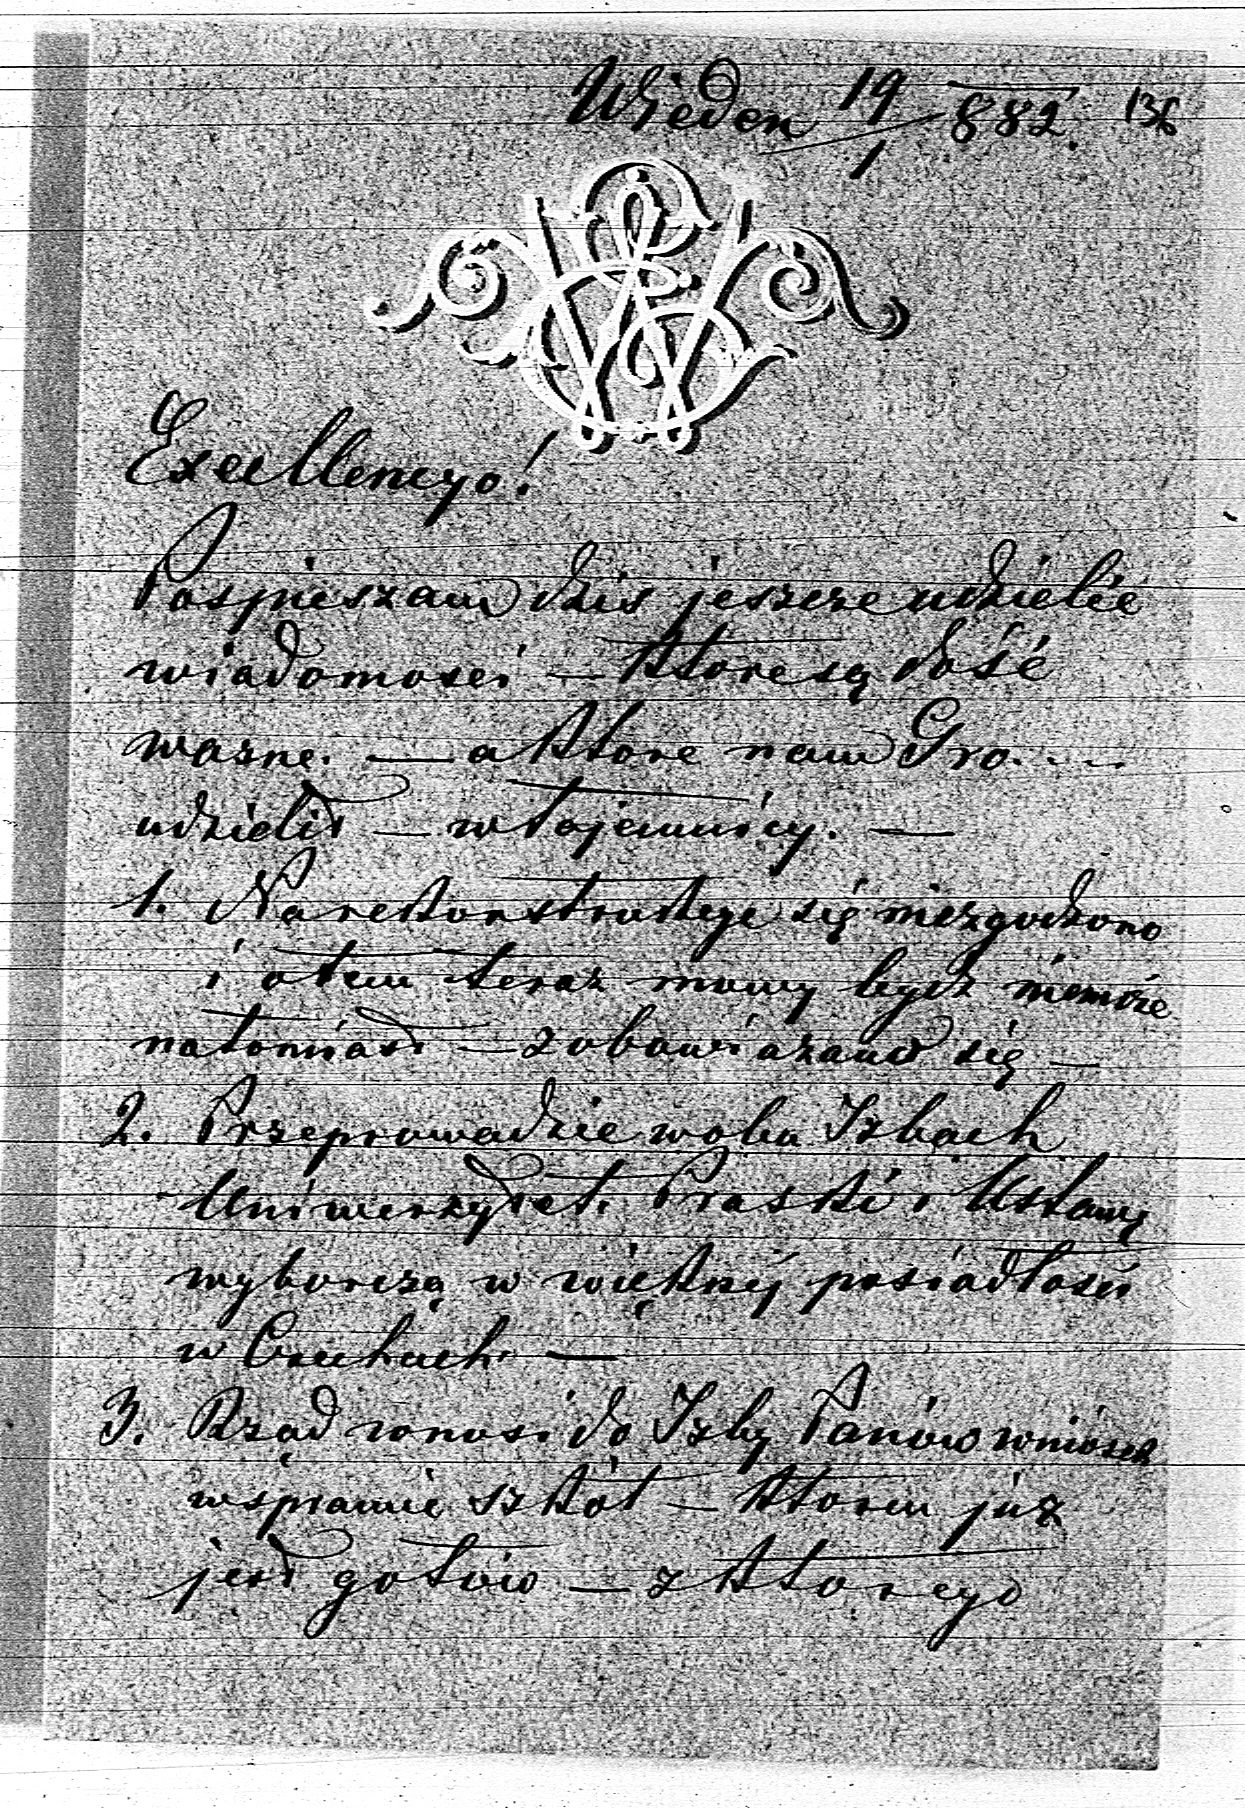 Wiedeń 19/1 882. 136
Excellencyo!
Pospieszam dziś jeszcze udzielić
wiadomości – które są dość
ważne. — a które nam Gro....
udzielił – w tajemnicy. —
1. Na rekonstrukcye się niezgodzono
i otem teraz mowy bydź niemoże
natomiast – zobowiązano się —
2. Przeprowadzić w obu Izbach
Uniwerzytet. Praski i Ustawę
wyborczą w większej posiadłości
w Czechach. —
3. Rząd wnosi do Izby Panów wniosek
w sprawie szkół – któren już
jest gotów – z którego